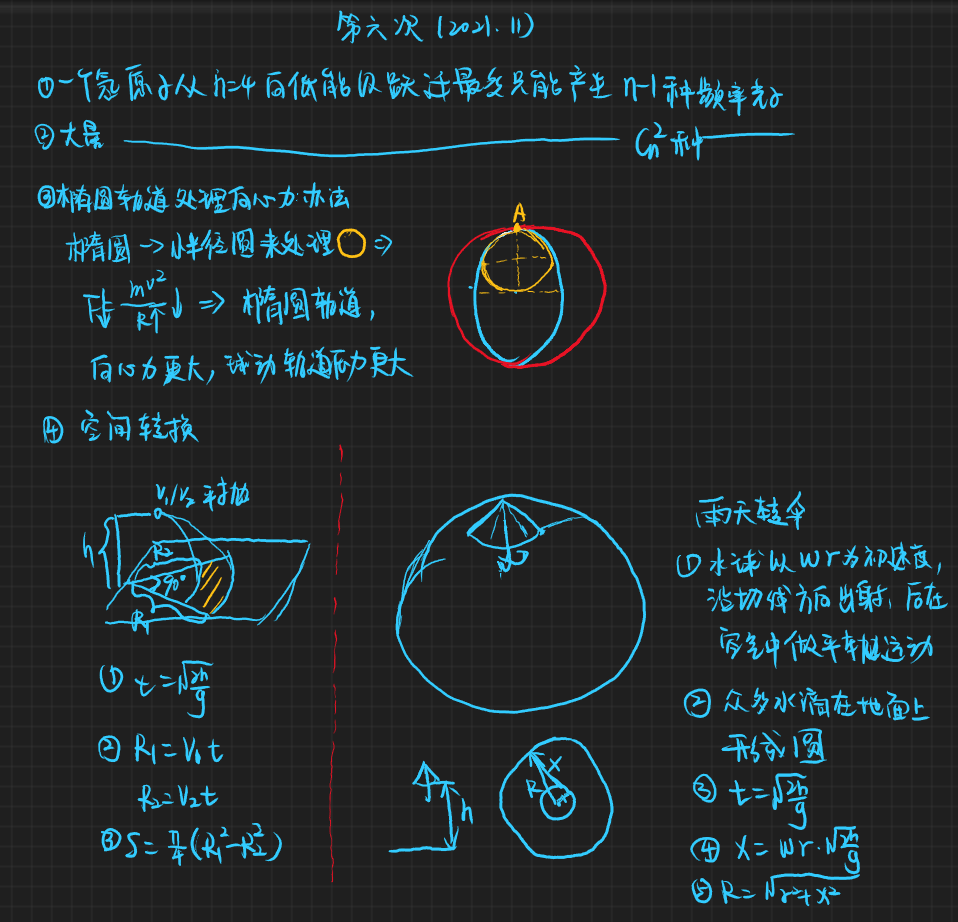 第六次 (2021.11)
①一个氢原子从n=4向低能级跃迁最多只能产生 n-1种频率光子
②大量 —— Cn²种 ——
③椭圆轨道处理向心力办法
椭圆→小半径圆来处理 ⇒
F↓ mv²/R↑ ↓ ⇒ 椭圆轨道,
向心力更大,
轨道
力更大
A
④ 空间转换
V₁/V₂ 平抛
h
R₂
90°
R₁
① t=√(2h/g)
② R₁=V₁t
R₂=V₂t
③ S=π/4(R₁²-R₂²)
h
R
x
雨天转伞
① 水球以wr为初速度,
沿切线方向出射,后在
空气中做平抛运动
② 众多水滴在地面上
形成1圆
③ t=√(2h/g)
④ X=wr·√(2h/g)
⑤ R=√(r²+x²)